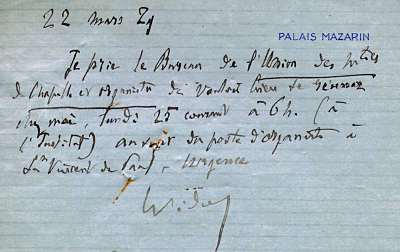 22 mars 29
PALAIS MAZARIN
Je prie le Bureau de l'Union des Mtres
de Chapelle et organistes de vouloir bien se réunir
chez moi, lundi 25 courant à 6h. (à
l'Institut) au sujet du poste d'organiste à
St Vincent de Paul, Urgence
Widor